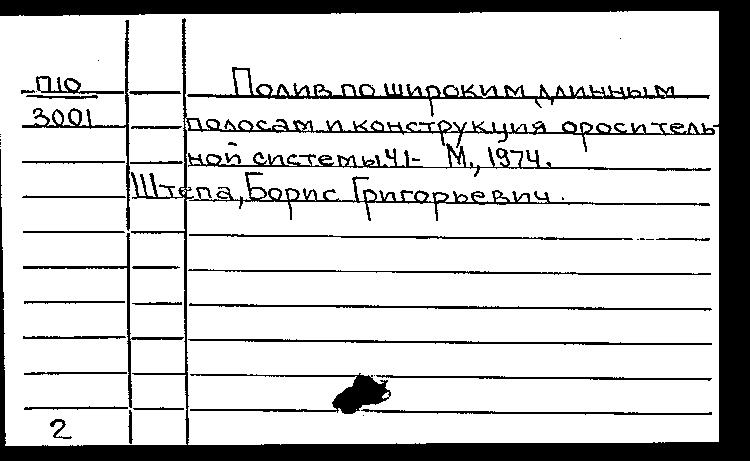 П10
3001
Полив по широким длинным
полосам и конструкция ороситель-
ной системы. Ч1- М., 1974.
Штепа, Борис Григорьевич.
2